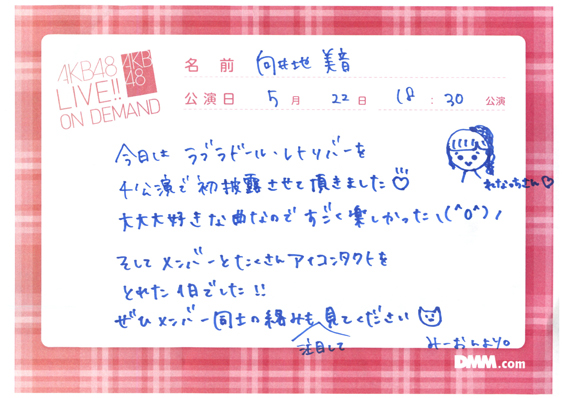 AKB48
LIVE!!
ON DEMAND
AKB
48
名 前 向井地 美音
公演日 5月 22日 18:30 公演
今日は ラブラドール・レトリバーを
4公演で初披露させて頂きました♡
大大大好きな曲なので すごく楽しかった\(^o^)/
れなっちさん♡
そして メンバーとたくさんアイコンタクトを
とれた1日でした!!
ぜひメンバー同士の絡みも見てください
注目して
みーおんより。
DMM.com